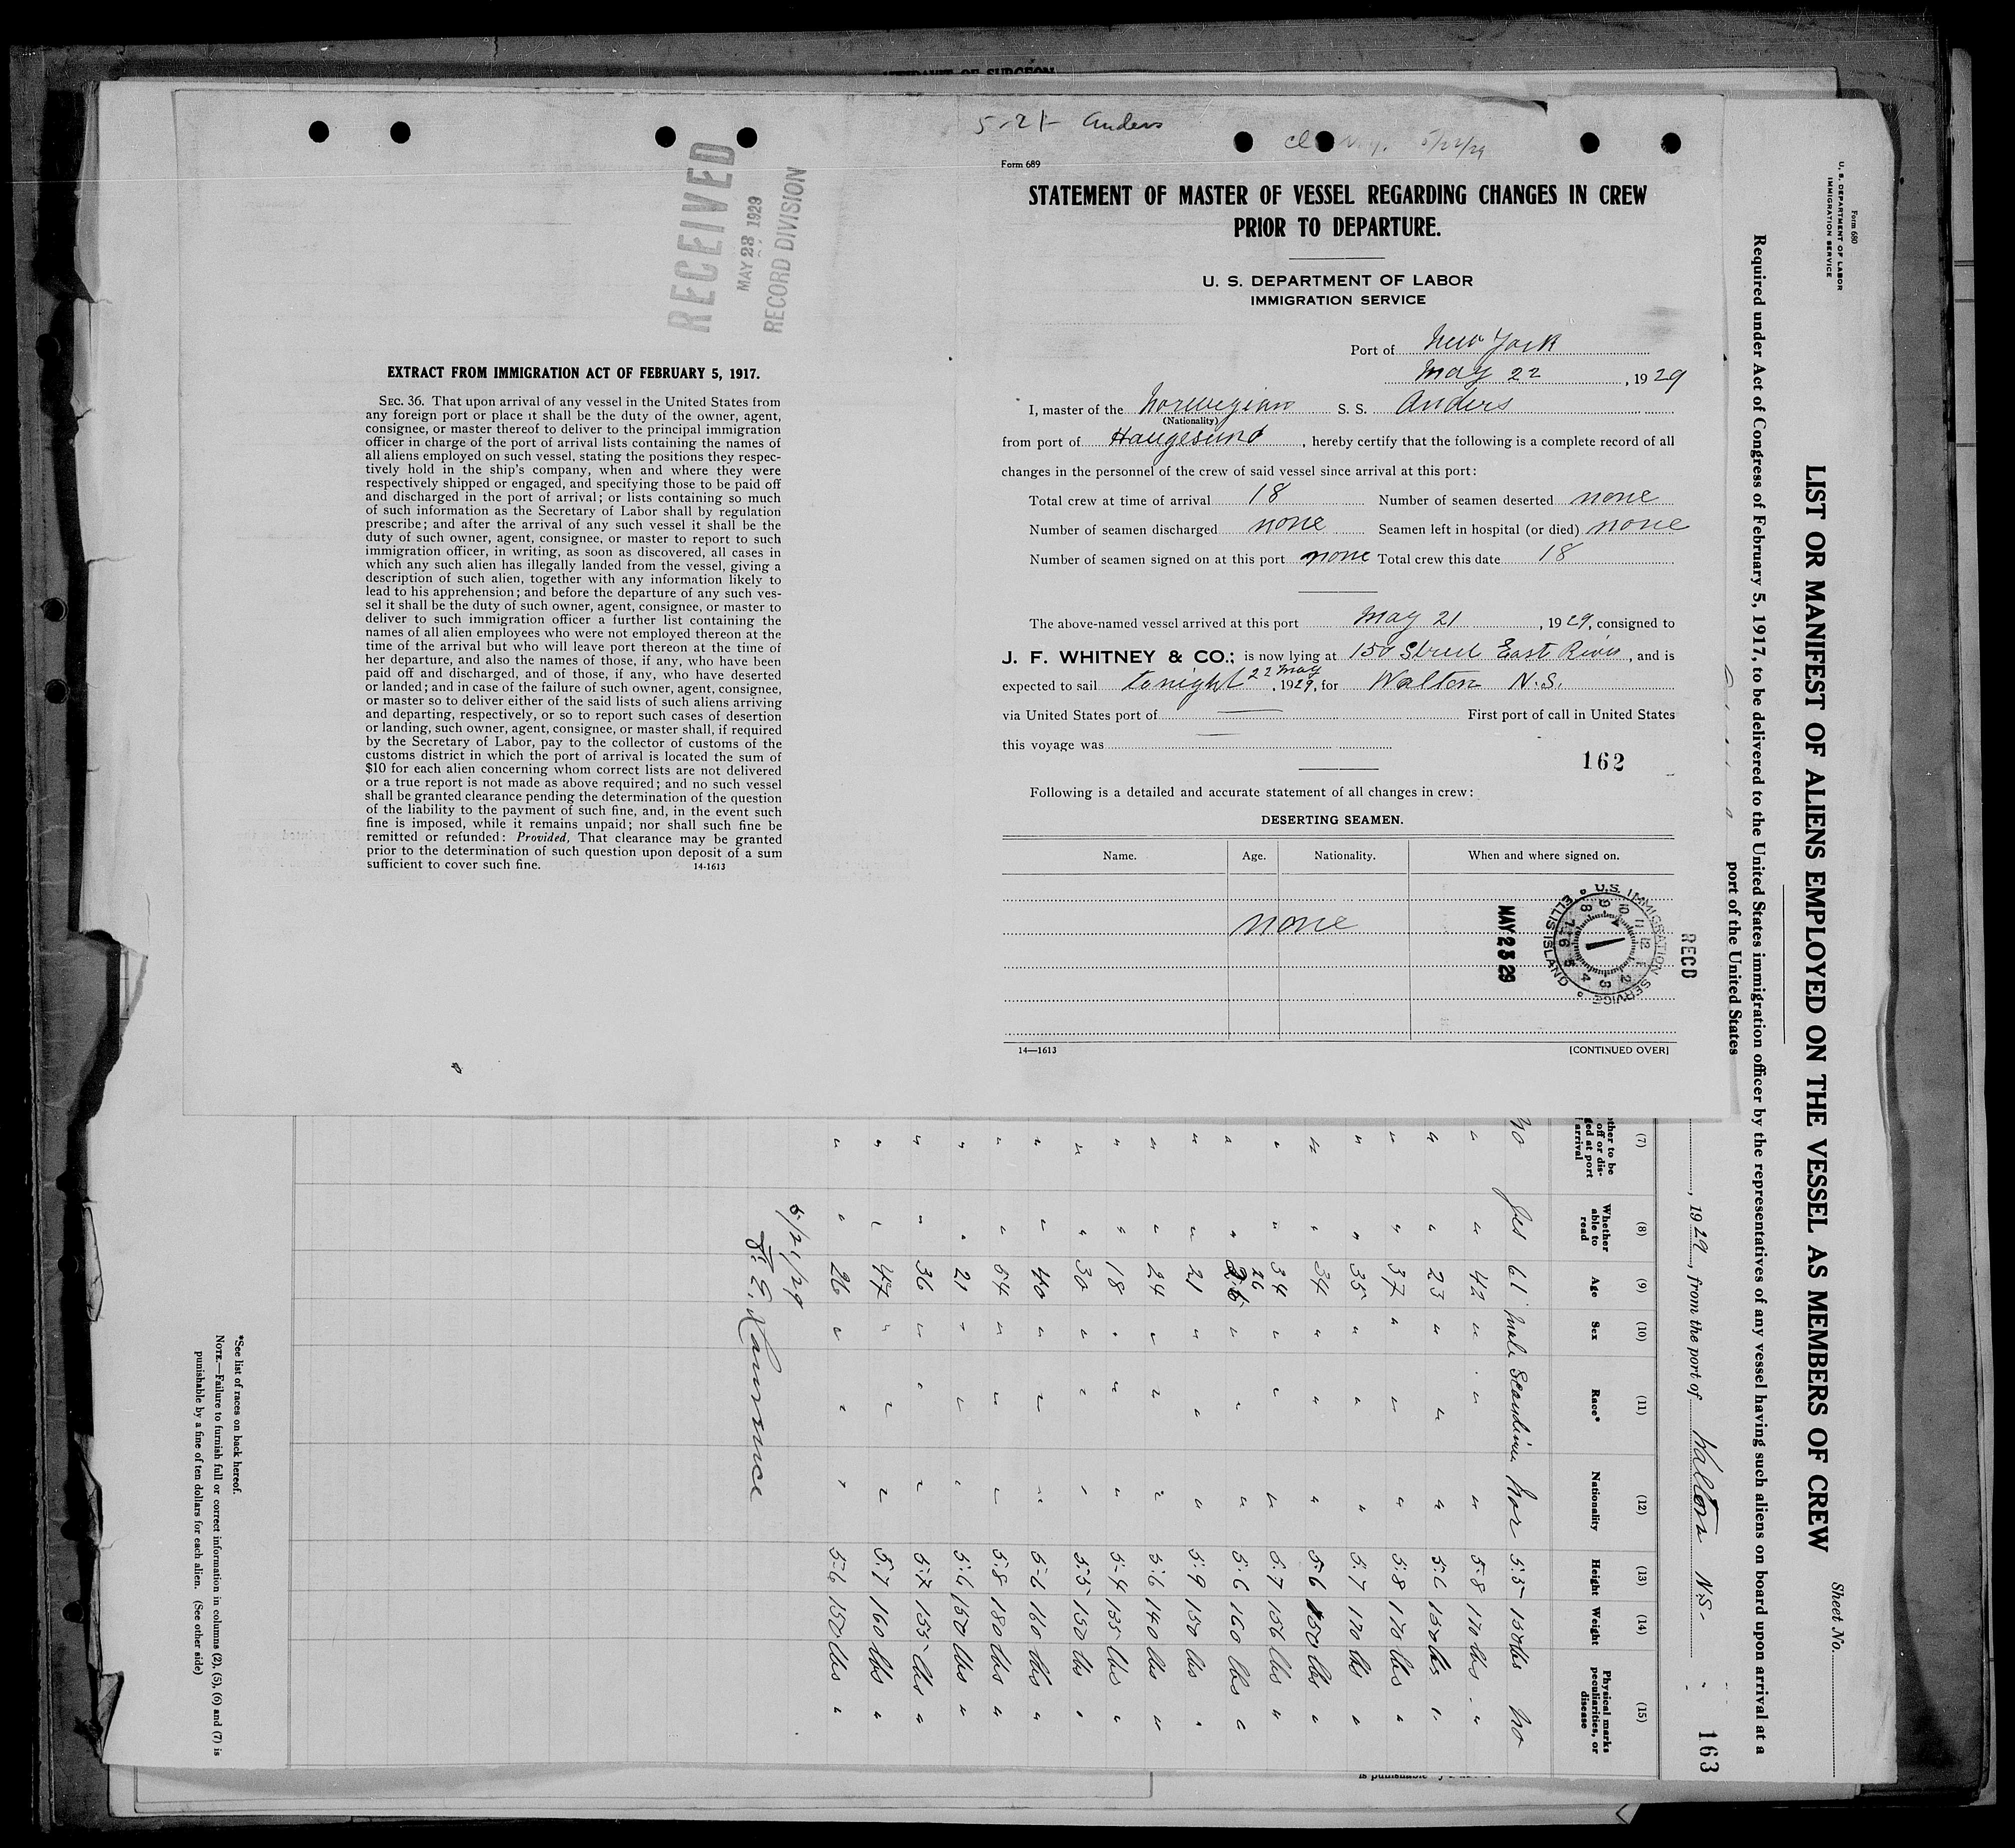 AFFIDAVIT OF SURGEON
5-21- Anders
5/22/29
Form 689
STATEMENT OF MASTER OF VESSEL REGARDING CHANGES IN CREW
PRIOR TO DEPARTURE.
U. S. DEPARTMENT OF LABOR
IMMIGRATION SERVICE
Port of New York
May 22, 1929
I, master of the Norwegian S. S. Anders
(Nationality)
from port of Haugesund, hereby certify that the following is a complete record of all
changes in the personnel of the crew of said vessel since arrival at this port:
Total crew at time of arrival 18 Number of seamen deserted none
Number of seamen discharged none Seamen left in hospital (or died) none
Number of seamen signed on at this port none Total crew this date 18
The above-named vessel arrived at this port May 21, 1929, consigned to
J. F. WHITNEY & CO.; is now lying at 150 Street East River, and is
expected to sail tonight 22 May, 1929, for Walton N.S.
via United States port of First port of call in United States
this voyage was
162
Following is a detailed and accurate statement of all changes in crew:
DESERTING SEAMEN.
Name. Age. Nationality. When and where signed on.
none
MAY 23 29
U.S. IMMIGRATION SERVICE ELLIS ISLAND
RECD
14—1613 [CONTINUED OVER]
RECEIVED
MAY 28 1929
RECORD DIVISION
EXTRACT FROM IMMIGRATION ACT OF FEBRUARY 5, 1917.
SEC. 36. That upon arrival of any vessel in the United States from
any foreign port or place it shall be the duty of the owner, agent,
consignee, or master thereof to deliver to the principal immigration
officer in charge of the port of arrival lists containing the names of
all aliens employed on such vessel, stating the positions they respec-
tively hold in the ship's company, when and where they were
respectively shipped or engaged, and specifying those to be paid off
and discharged in the port of arrival; or lists containing so much
of such information as the Secretary of Labor shall by regulation
prescribe; and after the arrival of any such vessel it shall be the
duty of such owner, agent, consignee, or master to report to such
immigration officer, in writing, as soon as discovered, all cases in
which any such alien has illegally landed from the vessel, giving a
description of such alien, together with any information likely to
lead to his apprehension; and before the departure of any such ves-
sel it shall be the duty of such owner, agent, consignee, or master to
deliver to such immigration officer a further list containing the
names of all alien employees who were not employed thereon at the
time of the arrival but who will leave port thereon at the time of
her departure, and also the names of those, if any, who have been
paid off and discharged, and of those, if any, who have deserted
or landed; and in case of the failure of such owner, agent, consignee,
or master so to deliver either of the said lists of such aliens arriving
and departing, respectively, or so to report such cases of desertion
or landing, such owner, agent, consignee, or master shall, if required
by the Secretary of Labor, pay to the collector of customs of the
customs district in which the port of arrival is located the sum of
$10 for each alien concerning whom correct lists are not delivered
or a true report is not made as above required; and no such vessel
shall be granted clearance pending the determination of the question
of the liability to the payment of such fine, and, in the event such
fine is imposed, while it remains unpaid; nor shall such fine be
remitted or refunded: Provided, That clearance may be granted
prior to the determination of such question upon deposit of a sum
sufficient to cover such fine. 14-1613
Form 680
U. S. DEPARTMENT OF LABOR
IMMIGRATION SERVICE
Sheet No.
LIST OR MANIFEST OF ALIENS EMPLOYED ON THE VESSEL AS MEMBERS OF CREW
Required under Act of Congress of February 5, 1917, to be delivered to the United States immigration officer by the representatives of any vessel having such aliens on board upon arrival at a
port of the United States
, 1929, from the port of Walton N.S.
163
(7) (8) (9) (10) (11) (12) (13) (14) (15)
Whether able to read Age Sex Race* Nationality Height Weight Physical marks, peculiarities, or disease
no Yes 61 Male Scandinav Nor 5.5 150 lbs no
" " 42 " " " 5.8 170 lbs "
" " 23 " " " 5.6 150 lbs "
" " 37 " " " 5.8 170 lbs "
" " 35 " " " 5.7 170 lbs "
" " 34 " " " 5.6 150 lbs "
" " 34 " " " 5.7 156 lbs "
" " 26 " " " 5.6 160 lbs "
" " 21 " " " 5.9 150 lbs "
" " 24 " " " 5.6 140 lbs "
" " 18 " " " 5-4 135 lbs "
" " 30 " " " 5.5 150 lbs "
" " 40 " " " 5-6 160 lbs "
" " 54 " " " 5.8 180 lbs "
" " 21 " " " 5.6 150 lbs "
" " 36 " " " 5.7 155 lbs "
" " 47 " " " 5.7 160 lbs "
" " 26 " " " 5-6 150 lbs "
5/21/29
*See list of races on back hereof.
NOTE.—Failure to furnish full or correct information in columns (2), (5), (6) and (7) is
punishable by a fine of ten dollars for each alien. (See other side)